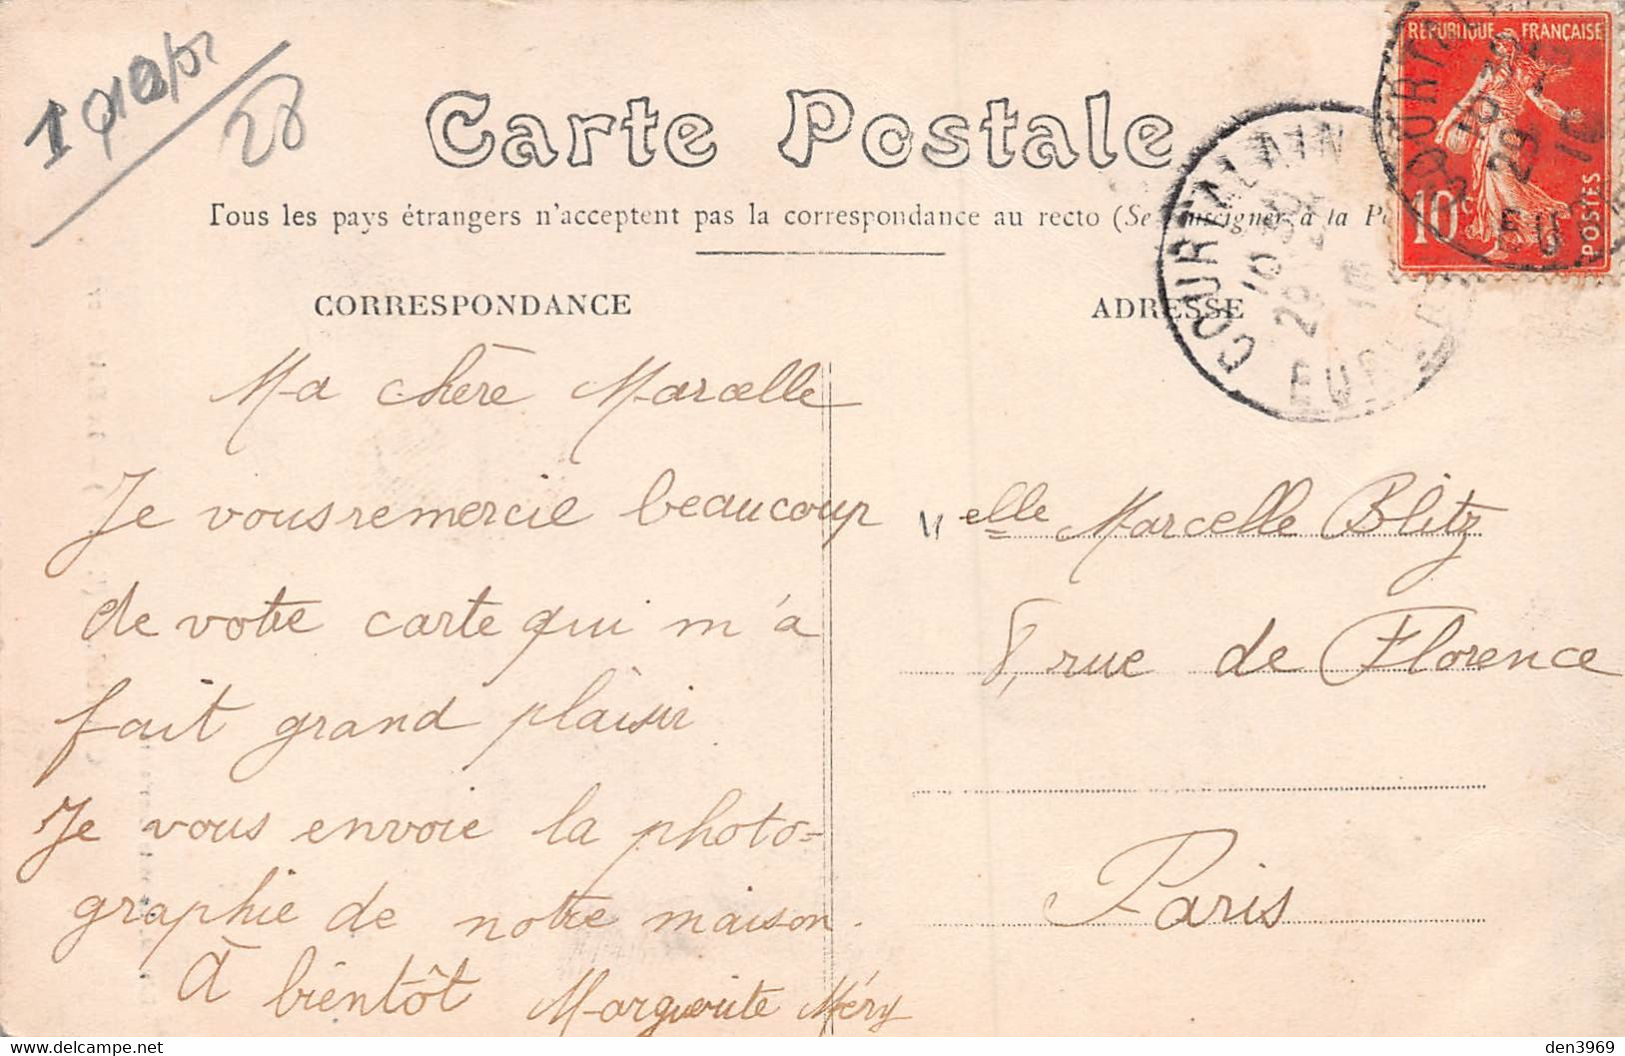 28
Carte Postale
Tous les pays étrangers n'acceptent pas la correspondance au recto (Se renseigner à la
RÉPUBLIQUE FRANÇAISE
10c
POSTES
COURTALAIN
10
29
10
EURE
COURTALAIN
10
29
10
EURE
CORRESPONDANCE
ADRESSE
Ma chère Marcelle
Je vous remercie beaucoup
de votre carte qui m'a
fait grand plaisir
Je vous envoie la photo-
graphie de notre maison.
À bientôt Marguerite Méry
Melle Marcelle Blitz
8, rue de Florence
Paris
den3969